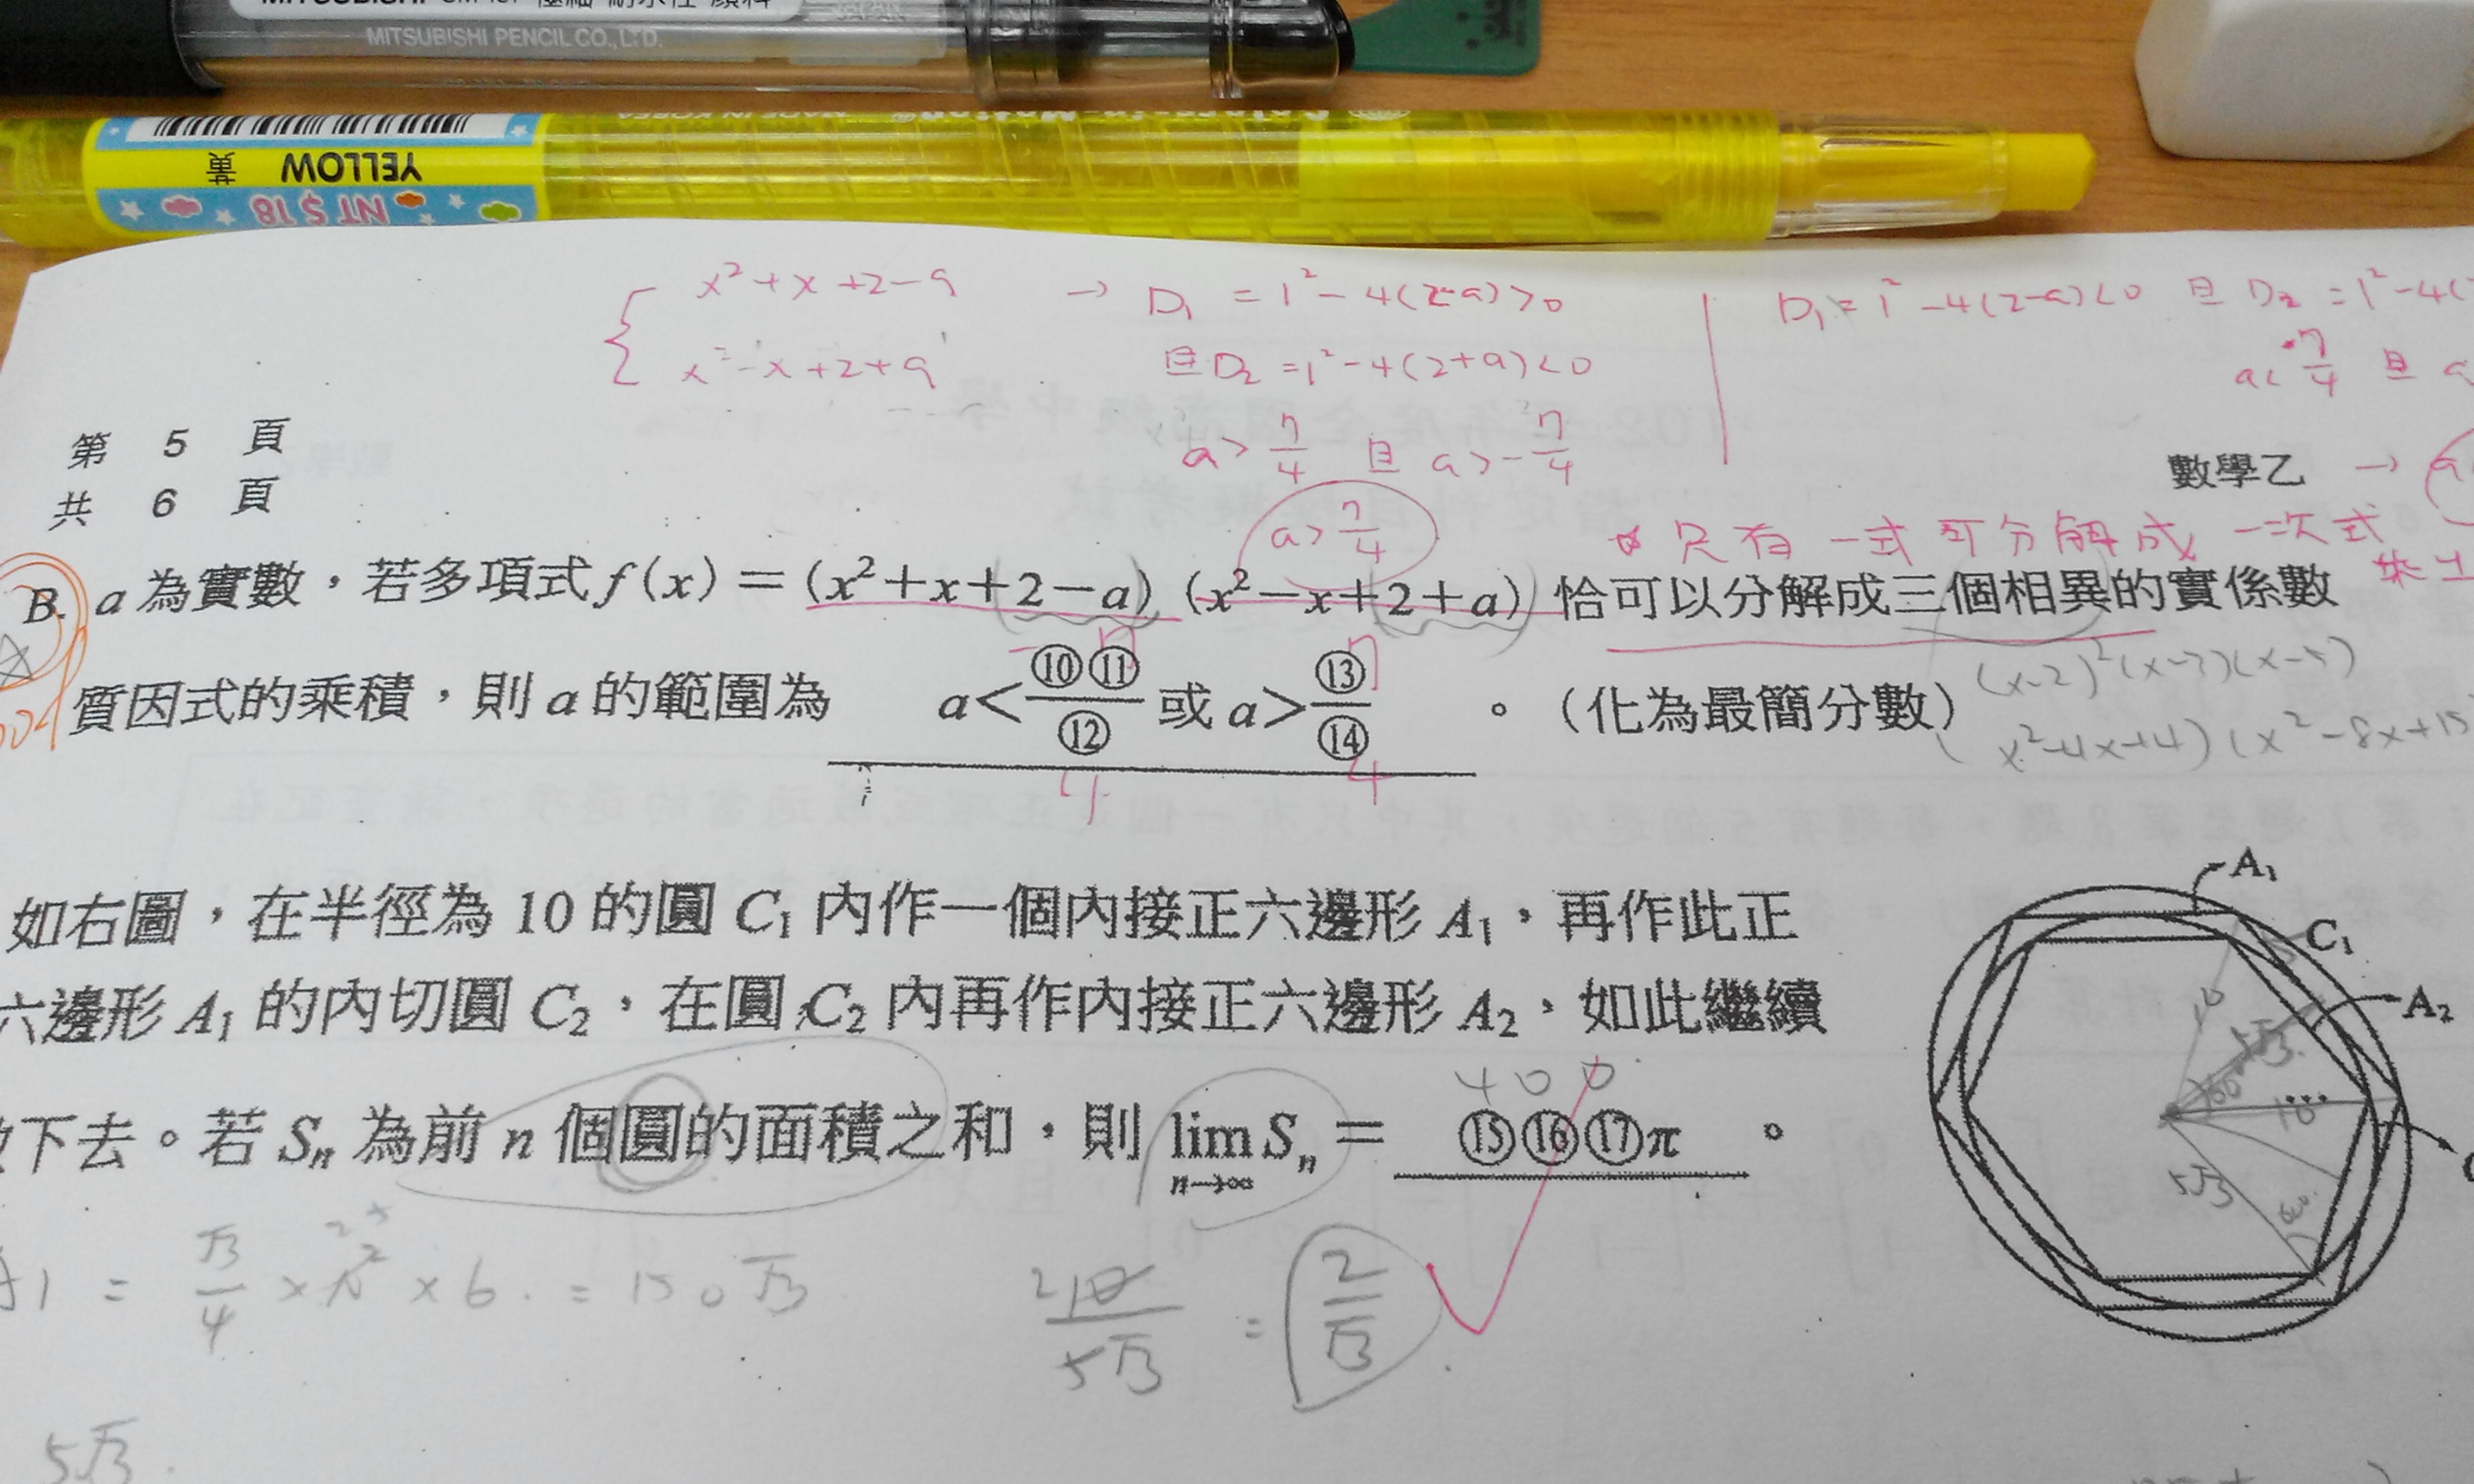 MITSUBISHI PENCIL CO., LTD.
MADE IN KOREA
YELLOW 黃
NT$18
x²+x+2-a → D₁ = 1²-4(2-a)>0
x²-x+2+a 且D₂ =1²-4(2+a)<0
a>7/4 且 a>-7/4
a>7/4
D₁=1²-4(2-a)<0 且 D₂ =1²-4(
a<7/4 且 a
第 5 頁
共 6 頁
數學乙 →
只有一式可分解成一次式
B. a 為實數,若多項式 f(x)=(x²+x+2-a)(x²-x+2+a) 恰可以分解成三個相異的實係數
-7 7
質因式的乘積,則 a 的範圍為 a<⑩⑪/⑫ 或 a>⑬/⑭ 。(化為最簡分數)
4 4
(x-2)²(x-3)(x-5)
(x²-4x+4)(x²-8x+15
如右圖,在半徑為 10 的圓 C₁ 內作一個內接正六邊形 A₁,再作此正
六邊形 A₁ 的內切圓 C₂,在圓 C₂ 內再作內接正六邊形 A₂,如此繼續
下去。若 Sₙ 為前 n 個圓的面積之和,則 lim Sₙ = ⑮⑯⑰π 。
n→∞
400
A₁
C₁
A₂
10
5√3
60°
10
5√3
60°
1 = √3/4 × 10² × 6 = 150√3
25
10/5√3 = 2/√3
2
5√3